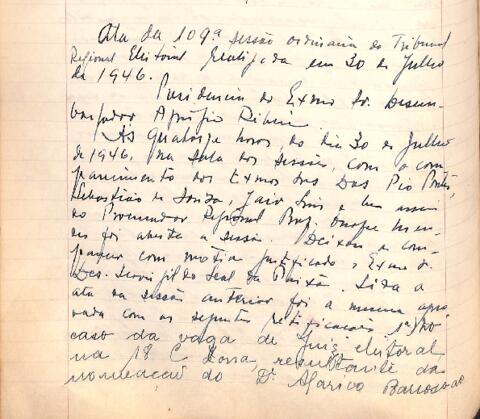 Ata da 109ª sessão ordinaria do Tribunal
Regional Eleitoral realizada em 30 de Julho
de 1946.
Presidencia do Exmo Sr. Desem-
bargador Agripio Ribeiro
Ás quatorze horas, do dia 30 de Julho
de 1946, na sala das sessões, com o com
parecimento dos Exmos Srs Drs
Sebastião de Souza, e bem assim
do Procurador Regional Men-
des foi aberta a sessão. Deixou de com-
parecer com motivo justificado o Exmo Sr.
Des. Leal da Paixão. Lida a
ata da sessão anterior foi a mesma apro
vada com as seguintes retificacões
caso da vaga de Juiz eleitoral
na 18 Zona, resultante da
nomeacão do Dr Barroso